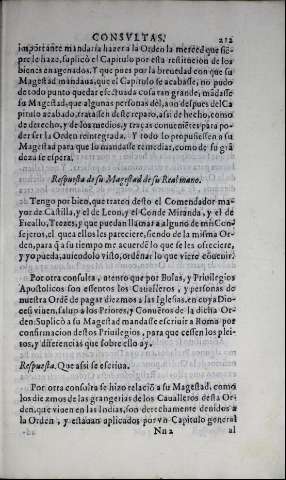 CONSVLTAS. 212
importante mandaria hazer a la Orden la merced que siẽ-
pre le haze, suplicò el Capitulo por esta restitucion de los
bienes enagenados. Y que pues por la breuedad con que su
Magestad mandaua, que el Capitulo se acabasse, no pudo
de todo punto quedar efectuada cosa tan grande, mãdasse
su Magestad, que algunas personas dèl, aun despues del Ca
pitulo acabado, tratassen deste reparo, assi de hecho, como
de derecho, y de los medios, y traças conueniẽtes para po-
der ser la Orden reintegrada. Y todo lo propusiessen a su
Magestad para que lo mandasse remediar, como de su grã
deza se espera.
Respuesta de su Magestad de su Real mano.
Tengo por bien, que traten desto el Comendador ma-
yor de Castilla, y el de Leon, y el Conde Miranda, y el de
Ficallo, Trezes, y que puedan llamar a alguno de mis Con
sejeros, el que a ellos les pareciere, siendo de la misma Or-
den, para q̃ a su tiempo me acuerdẽ lo que se les ofreciere,
y yo pueda, auiendolo visto, ordenar lo que viere cõuenir.
Por otra consulta, atento que por Bulas, y Priuilegios
Apostolicos son essentos los Caualleros, y personas de
nuestra Ordẽ de pagar diezmos a las Iglesias, en cuya Dio-
cesi viuen, saluo a los Priores, y Conuẽtos de la dicha Or-
den: Suplicò a su Magestad mandasse escriuir a Roma por
confirmacion destos Priuilegios, para que cessen los plei-
tos, y diferencias que sobre ello ay.
Respuesta. Que assi se escriua.
Por otra consulta se hizo relaciõ a su Magestad, como
los diezmos de las grangerias de los Caualleros desta Or-
den, que viuen en las Indias, son derechamente deuidos a
la Orden, y estauan aplicados por vn Capitulo general
Nn 2 al